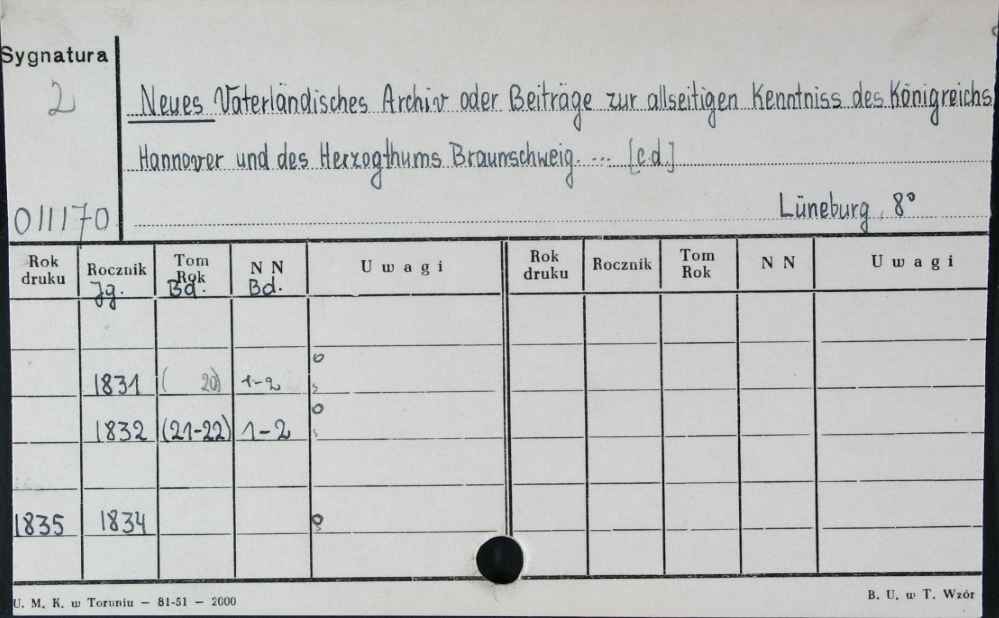 Sygnatura
2
Neues Vaterländisches Archiv oder Beiträge zur allseitigen Kenntniss des Königreichs
Hannover und des Herzogthums Braunschweig. ... [c.d.]
011170
Lüneburg, 8°
Rok druku Rocznik Tom Rok N N U w a g i Rok druku Rocznik Tom Rok N N U w a g i
Jg. Bd. Bd.
1831 ( 20) 1-2
1832 (21-22) 1-2
1835 1834
U. M. K. w Toruniu — 81-51 — 2000
B. U. w T. Wzór